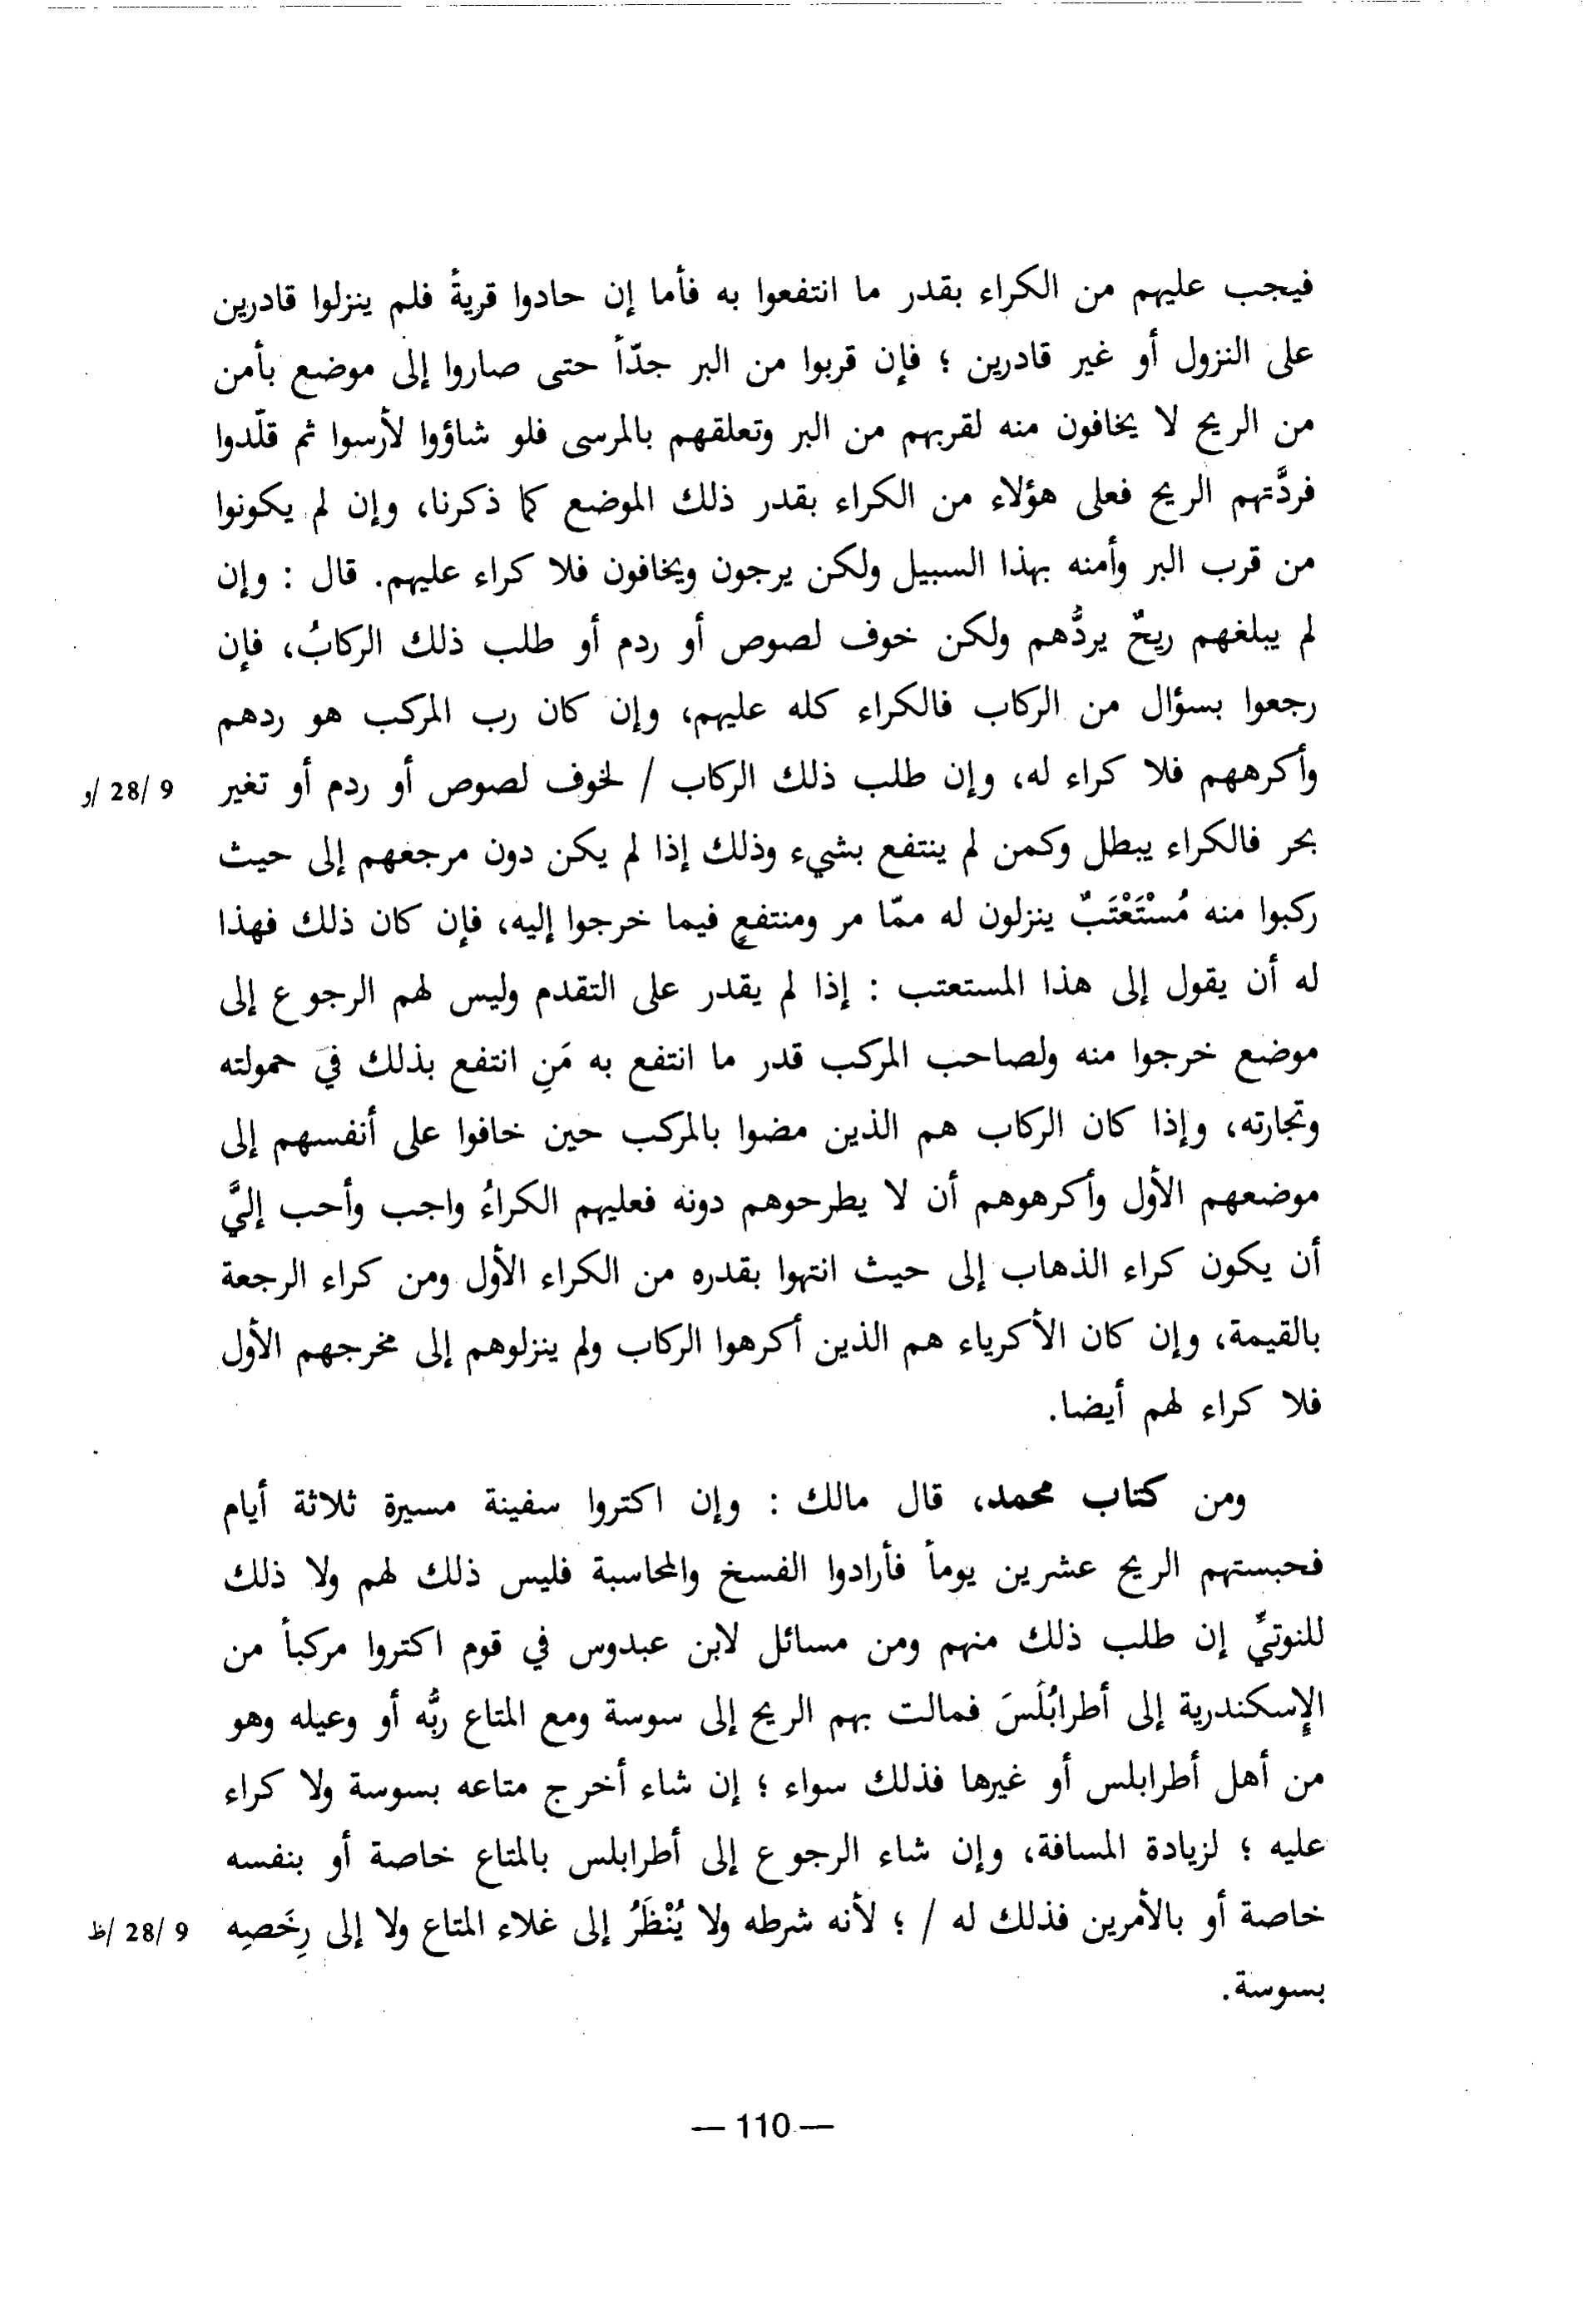 فيجب عليهم من الكراء بقدر ما انتفعوا به فأما إن حادوا قريةً فلم ينزلوا قادرين
على النزول أو غير قادرين ؛ فإن قربوا من البر جدّاً حتى صاروا إلى موضع بأمن
من الريح لا يخافون منه لقربهم من البر وتعلقهم بالمرسى فلو شاؤوا لأرسوا ثم قلّدوا
فردَّتهم الريح فعلى هؤلاء من الكراء بقدر ذلك الموضع كما ذكرنا، وإن لم يكونوا
من قرب البر وأمنه بهذا السبيل ولكن يرجون ويخافون فلا كراء عليهم. قال : وإن
لم يبلغهم ريحٌ يردُّهم ولكن خوف لصوص أو ردم أو طلب ذلك الركابُ، فإن
رجعوا بسؤال من الركاب فالكراء كله عليهم، وإن كان رب المركب هو ردهم
وأكرههم فلا كراء له، وإن طلب ذلك الركاب / لخوف لصوص أو ردم أو تغير 9 /28/و
بحر فالكراء يبطل وكمن لم ينتفع بشيء وذلك إذا لم يكن دون مرجعهم إلى حيث
ركبوا منه مُسْتَعْتَبٌ ينزلون له ممّا مر ومنتفعٍ فيما خرجوا إليه، فإن كان ذلك فهذا
له أن يقول إلى هذا المستعتب : إذا لم يقدر على التقدم وليس لهم الرجوع إلى
موضع خرجوا منه ولصاحب المركب قدر ما انتفع به مَنِ انتفع بذلك في حمولته
وتجارته، وإذا كان الركاب هم الذين مضوا بالمركب حين خافوا على أنفسهم إلى
موضعهم الأول وأكرهوهم أن لا يطرحوهم دونه فعليهم الكراءُ واجب وأحب إليَّ
أن يكون كراء الذهاب إلى حيث انتهوا بقدره من الكراء الأول ومن كراء الرجعة
بالقيمة، وإن كان الأكرياء هم الذين أكرهوا الركاب ولم ينزلوهم إلى مخرجهم الأول
فلا كراء لهم أيضا.
ومن كتاب محمد، قال مالك : وإن اكتروا سفينة مسيرة ثلاثة أيام
فحبستهم الريح عشرين يوماً فأرادوا الفسخ والمحاسبة فليس ذلك لهم ولا ذلك
للنوتيِّ إن طلب ذلك منهم ومن مسائل لابن عبدوس في قوم اكتروا مركباً من
الإسكندرية إلى أطرابُلَسَ فمالت بهم الريح إلى سوسة ومع المتاع ربُّه أو وعيله وهو
من أهل أطرابلس أو غيرها فذلك سواء ؛ إن شاء أخرج متاعه بسوسة ولا كراء
عليه ؛ لزيادة المسافة، وإن شاء الرجوع إلى أطرابلس بالمتاع خاصة أو بنفسه
خاصة أو بالأمرين فذلك له / ؛ لأنه شرطه ولا يُنْظَرُ إلى غلاء المتاع ولا إلى رِخَصيِه 9 /28/ظ
بسوسة.
— 110 —